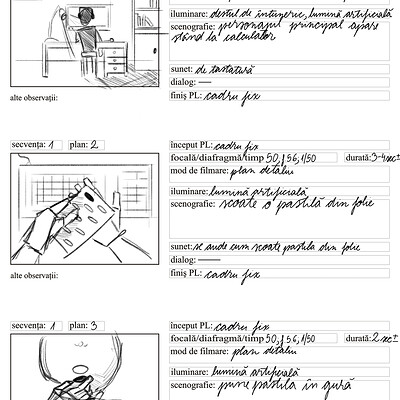 iluminare: destul de întuneric, lumină artificială
scenografie: personajul principal apare
stând la calculator
sunet: de tastatură
dialog: —
alte observații:
finiș PL: cadru fix
secvența: 1 plan: 2 început PL: cadru fix
focală/diafragmă/timp 50, f 56, 1/50 durată: 3-4sec
mod de filmare: plan detaliu
iluminare: lumină artificială
scenografie: scoate o pastilă din folie
sunet: se aude cum scoate pastila din folie
dialog: —
alte observații:
finiș PL: cadru fix
secvența: 1 plan: 3 început PL: cadru fix
focală/diafragmă/timp 50, f 56, 1/50 durată: 2 sec
mod de filmare: plan detaliu
iluminare: lumină artificială
scenografie: pune pastila în gură